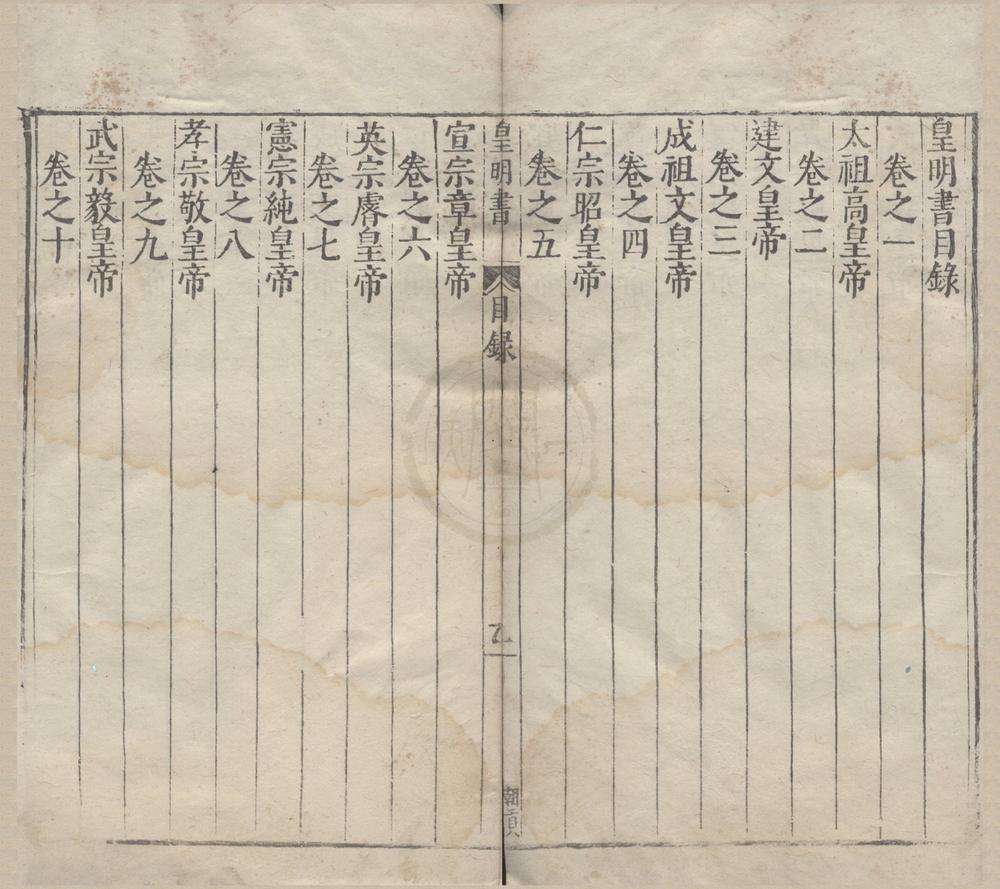 皇明書目錄
卷之一
太祖高皇帝
卷之二
建文皇帝
卷之三
成祖文皇帝
卷之四
仁宗昭皇帝
卷之五
皇明書
目録
乙
朝貢
宣宗章皇帝
卷之六
英宗睿皇帝
卷之七
憲宗純皇帝
卷之八
孝宗敬皇帝
卷之九
武宗毅皇帝
卷之十